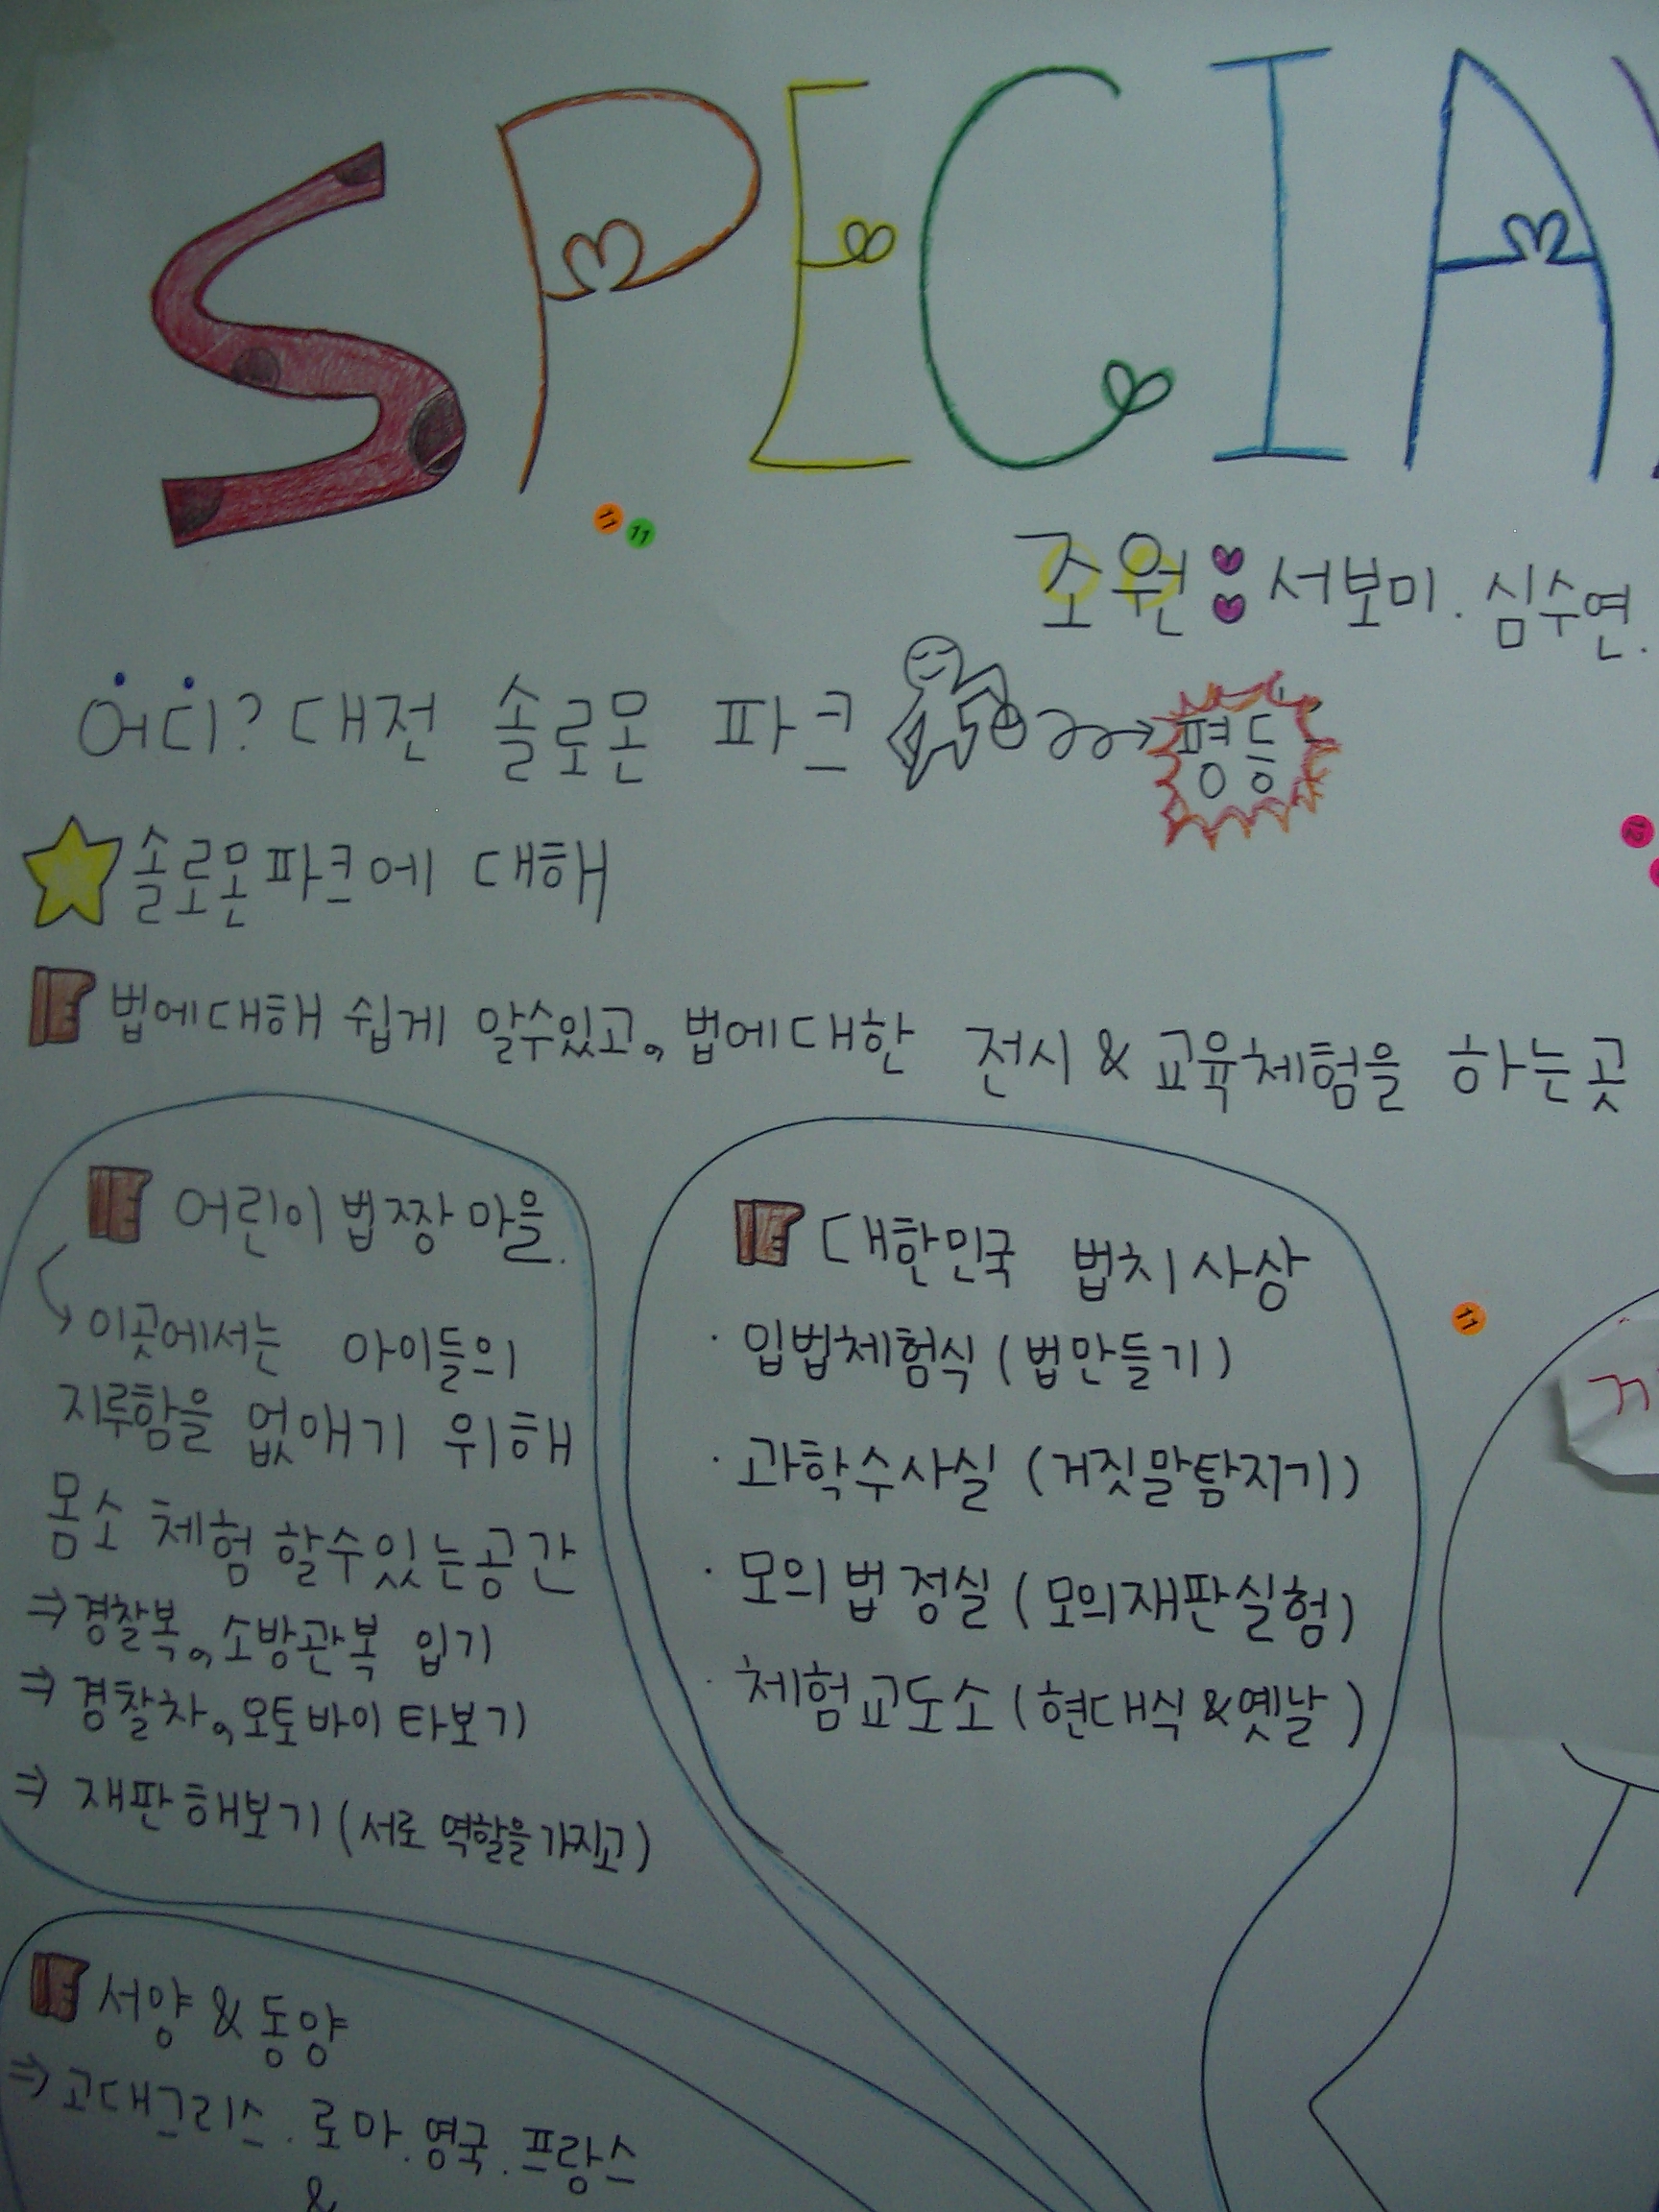 SPECIA
11 11
조원: 서보미. 심수연.
어디? 대전 솔로몬 파크
평등
솔로몬파크에 대해
12
법에대해 쉽게 알수있고, 법에대한 전시 & 교육체험을 하는곳
어린이 법짱마을.
이곳에서는 아이들의
지루함을 없애기 위해
몸소 체험 할수있는공간
⇒ 경찰복, 소방관복 입기
⇒ 경찰차, 오토바이 타보기
⇒ 재판해보기 (서로 역할을가지고)
대한민국 법치사상
· 입법체험식 (법만들기)
· 과학수사실 (거짓말탐지기)
· 모의법정실 (모의재판실험)
· 체험교도소 (현대식&옛날)
11
서양 & 동양
⇒ 고대그리스. 로마. 영국. 프랑스
&